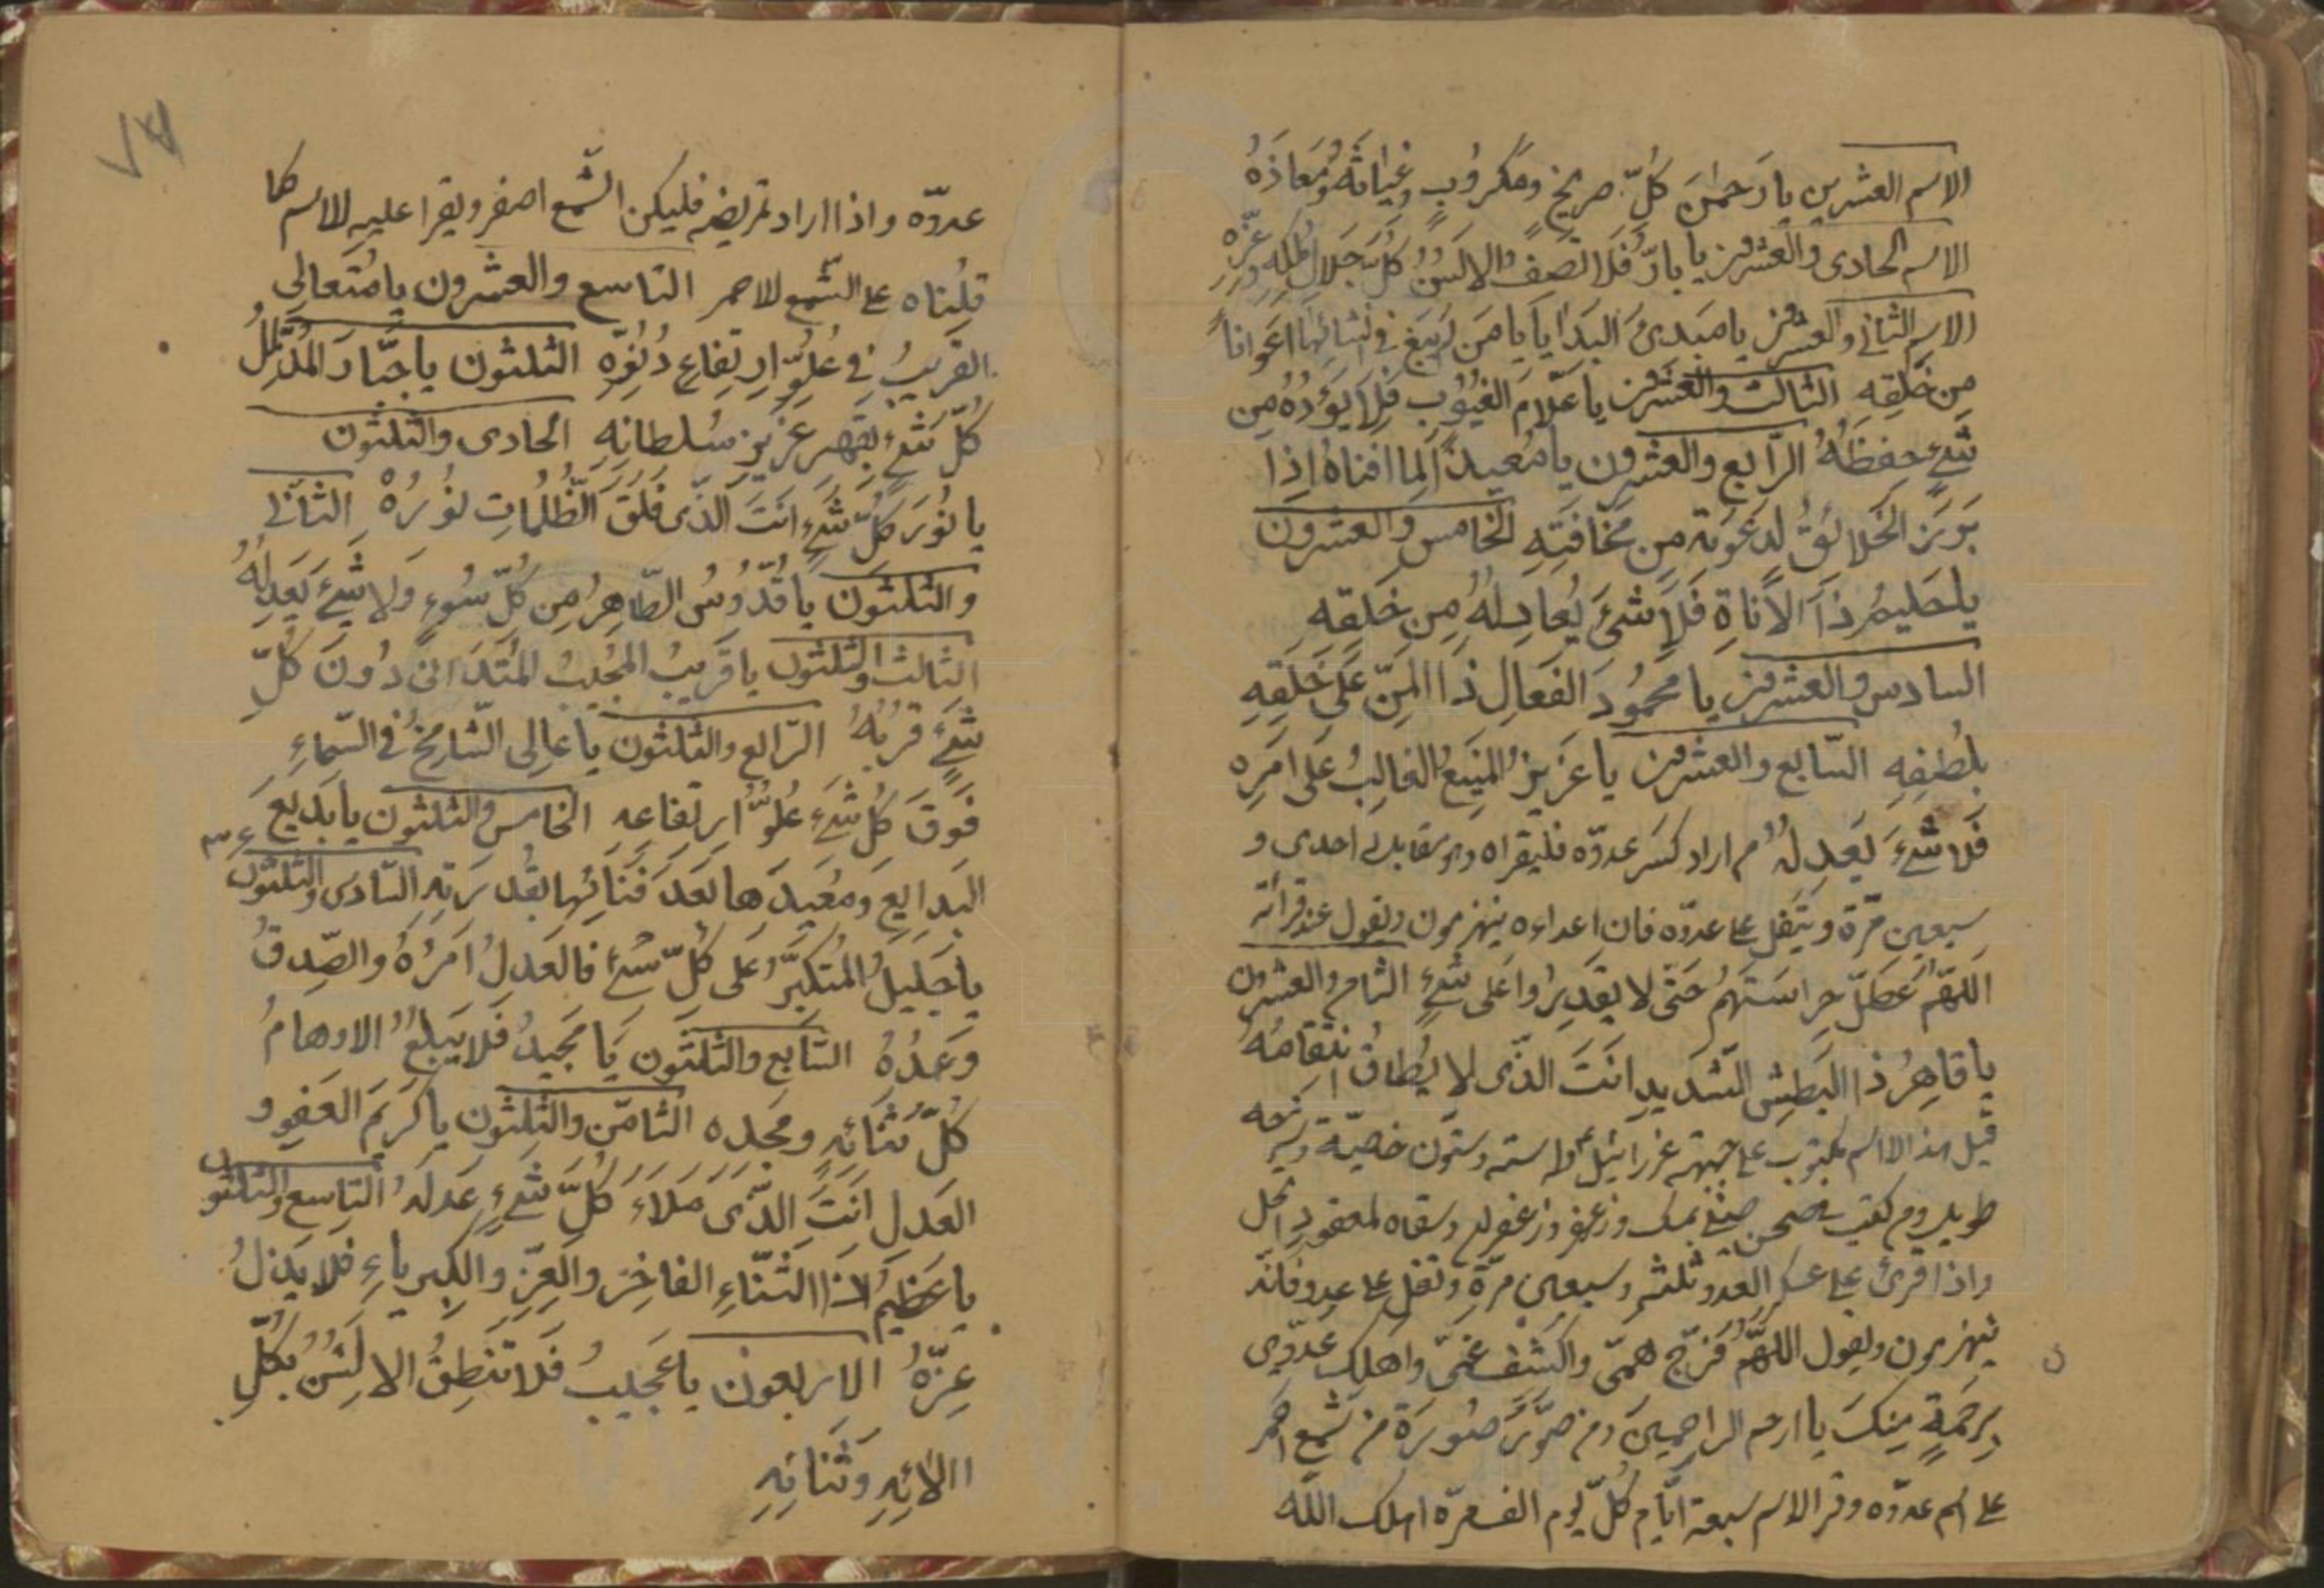 الاسم العشرين يا رَحمٰنَ كُلِّ صريخٍ ومكرُوبٍ وغياثَهُ ومَعاذَهُ
الاسم الحادى والعشرين يا بارُّ فَلا تَصفُ الالسُنُ كُلَّ جَلالِ مُلكه وعزّه
الاسم الثانى والعشرين يا مبدئ البَدايا يا مَن لَم يَبغِ فى انشائِها اعوانًا
مِن خَلقِهِ الثالث والعشرين يا عَلّامَ الغُيُوبِ فَلا يَؤُدُهُ مِن
شَئٍ حِفظَهُ الرّابع والعشرون يا مُعيدًا لِما افناهُ اِذا
بَرَزَ الخَلائقُ لِدَعوَتِه مِن مَخافَتِهِ الخامس والعشرون
يا حَليمُ ذَا الاَناةِ فَلا شَئَ يُعادِلُهُ مِن خَلقِهِ
السادس والعشرين يا مَحمُودَ الفَعالِ ذَا المَنِّ عَلى خَلقِهِ
بلُطفِهِ السّابع والعشرين يا عَزيزُ المَنيعُ الغالِبُ عَلى امَرِه
فَلا شَئَ يَعدِلُهُ م اراد كسَر عدوّه فليقراه احدى و
سبعين مرّة ويتفل على عدوّه فان اعداءه ينهزمون ويقول عند قرائته
اَللّهُمَّ عَطِّل حِراسَتَهُم حَتّى لا يَقدِرُوا عَلى شَئٍ الثامن والعشرون
يا قاهِرُ ذَا البَطشِ الشَديدِ انَتَ الذّى لا يُطاقُ انتِقامُهُ
قيل هذا الاسم مكتوب على جبهة عزرائيل وله ستة وستون خاصيّة
وسقاه لمعقود انحل
واذا قرئ على عسكر العدو ثلثه وسبعين مرّة وتفل على عدو فانّه
ينهزمون ويقول اللّهُمَّ فَرِّج هَمّى واكشف غمّى واهلك عَدوّى
بِرَحمَةٍ مِنكَ يا ارحم الراحمينَ ومن صَوَّرَ صُورَةً من شَمعٍ احمَر
على اسم عدوّه وقرا الاسم سبعة ايّام كُلّ يوم الف مرّة اهلك اللّه
عدوّه واذا اراد تمريضه فليكن الشّمع اصفر ويقرا عليه الاسم كما
قلناه على الشّمع الاحمر التاسع والعشرون يا مُتعالِى
القَريبُ فى عُلُوِّ ارتِفاعِ دُنُوِّهِ الثلثون يا جَبّارَ المُذَلِّلُ
كُلَّ شَئٍ بقَهرِ عَزيزِ سُلطانِهِ الحادى والثلثون
يا نُورَ كُلِّ شَئٍ انَتَ الَذّى فَلَقَ الظُّلُماتِ نُورُهُ الثانى
والثلثون يا قُدّوسُ الطّاهِرُ مِن كُلِّ سُوءٍ وَلا شَئَ يَعدِلُهُ
الثالث والثلثون يا قَريبُ المُجيبُ المُتَدانى دُونَ كُلِّ
شَئٍ قُربُهُ الرّابع والثلثون يا عالِى الشّامِخُ فى السَّماءِ
فَوقَ كُلِّ شَئٍ عُلُوُّ ارتفاعه الخامس والثلثون يا بَديعَ
البَدايعِ ومُعيدَها بَعدَ فَنائِها بقُدرَتِهِ السّادس والثلثون
يا جَليلُ المُتكَبِّرُ عَلى كُلِّ شئٍ فالعَدلُ امَرُهُ والصِّدقُ
وَعدُهُ السّابع والثلثون يا مَجيدُ فَلا يَبلُغُ الاوهامُ
كُلَّ ثَنائِهِ ومجَده الثامن والثلثون يا كَرَيمَ العَفِو و
العَدلِ انَتَ الذّى مَلَاءَ كُلَّ شَئٍ عَدلُهُ التاسع والثلثون
يا عَظيمُ ذَا الثَّناءِ الفاخِرِ والعِزِّ والكِبرياءِ فلا يَذِلُّ
عِزُّهُ الاربعون يا عَجيبُ فَلا تَنطِقُ الالسُنُ بكُلِّ
االائِهِ وَثَنائِهِ